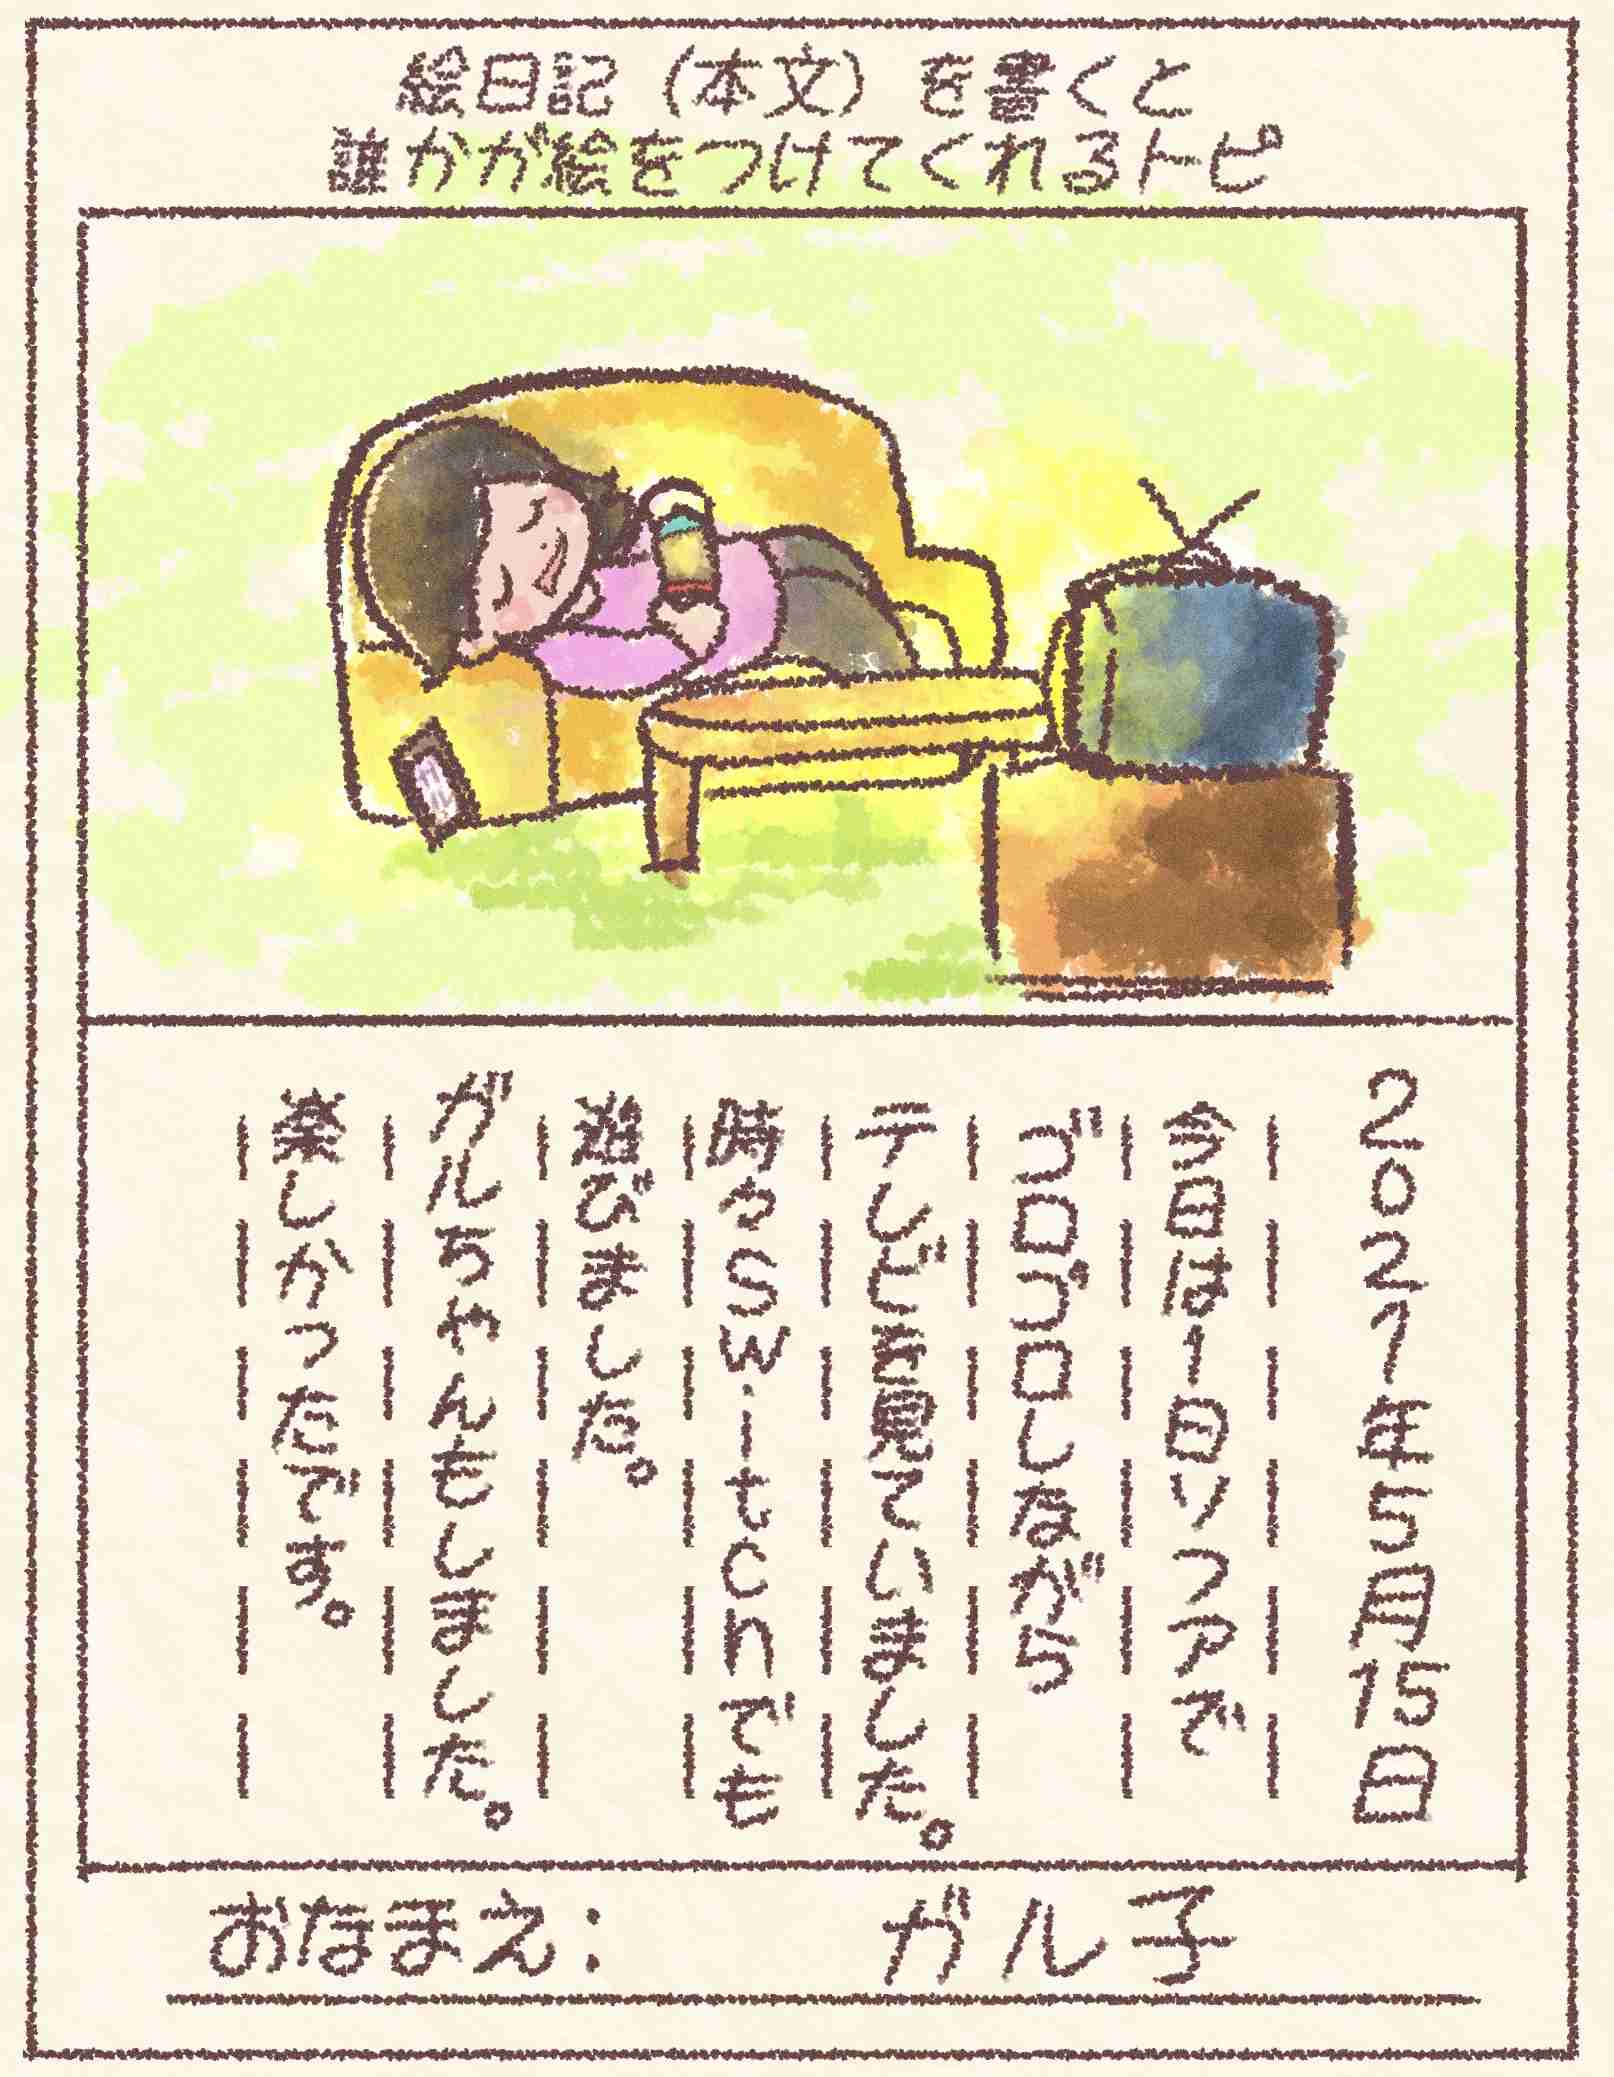 絵日記（本文）を書くと
誰かが絵をつけてくれるトピ
2021年5月15日
今日は1日ソファで
ゴロゴロしながら
テレビを見ていました。
時々Switchでも
遊びました。
がるちゃんもしました。
楽しかったです。
おなまえ：　ガル子